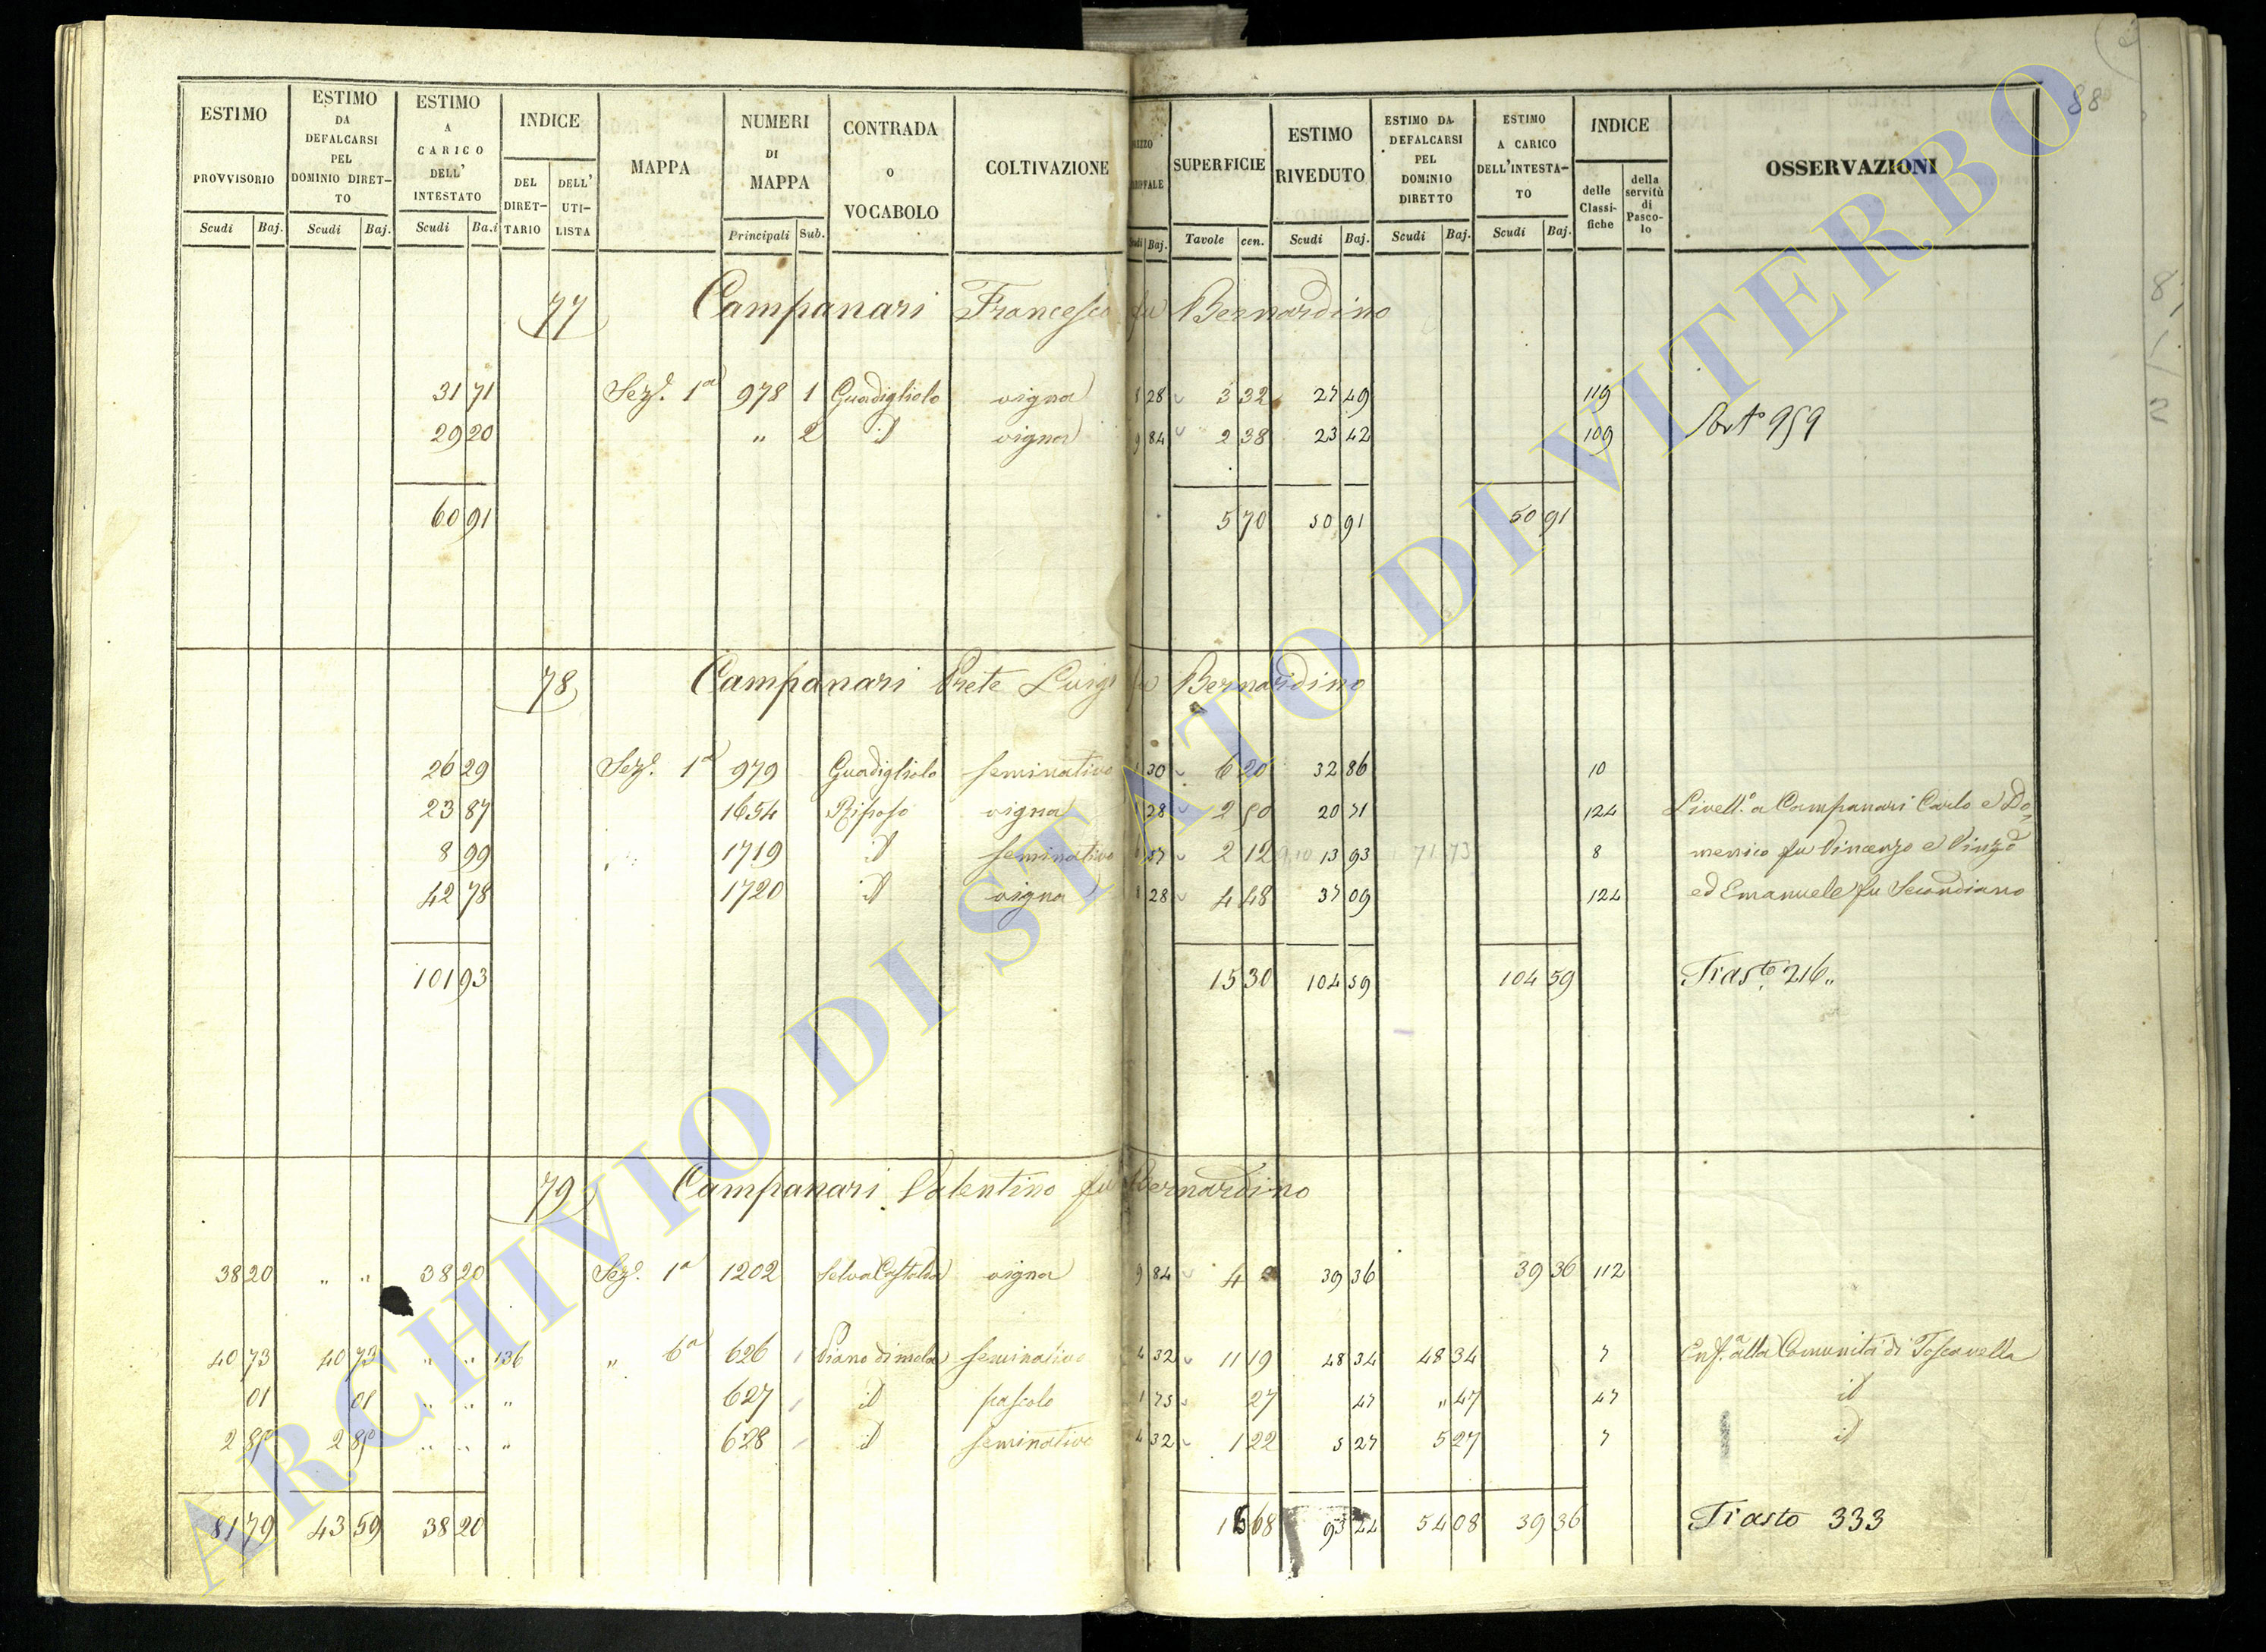 88
ESTIMO PROVVISORIO Scudi Baj.
ESTIMO DA DEFALCARSI PEL DOMINIO DIRET-TO Scudi Baj.
ESTIMO A CARICO DELL' INTESTATO Scudi Ba.i
INDICE DEL DIRET-TARIO DELL' UTI-LISTA
MAPPA
NUMERI DI MAPPA Principali Sub.
CONTRADA O VOCABOLO
COLTIVAZIONE
Baj.
SUPERFICIE Tavole cen.
ESTIMO RIVEDUTO Scudi Baj.
ESTIMO DA DEFALCARSI PEL DOMINIO DIRETTO Scudi Baj.
ESTIMO A CARICO DELL'INTESTA-TO Scudi Baj.
INDICE delle Classi-fiche della servitù di Pasco-lo
OSSERVAZIONI
77 Campanari Francesco fu Bernardino
31 71 Sez.e 1a 978 1 Guadigliolo vigna 8 28 3 32 27 49 119
29 20 " 2 id vigna 9 84 2 38 23 42 109
Part 959
60 91 5 70 50 91 50 91
78 Campanari Prete Luigi fu Bernardino
26 29 Sez.e 1a 979 Guadigliolo seminativo 30 6 20 32 86 10
23 87 1654 Riposo vigna 28 2 50 20 71 124 Livell.o a Campanari Carlo e Do,
8 99 1719 id seminativo 57 2 12 13 93 71 73 8 menico fu Vincenzo e Vinzo
42 78 1720 id vigna 28 4 48 37 09 124 ed Emanuele fu Secondiano
101 93 15 30 104 59 104 59 Trasto 216"
79 Campanari Valentino fu Bernardino
38 20 " " 38 20 Sez.e 1a 1202 Selva Castolo vigna 9 84 4 39 36 39 36 112
40 73 40 73 " " 136 " 6a 626 Piano di mola seminativo 4 32 11 19 48 34 48 34 7 Enf.a alla Comunità di Toscanella
01 01 " " " 627 id pascolo 1 75 27 47 " 47 47 id
2 85 2 85 " " " 628 id seminativo 4 32 1 22 5 27 5 27 7 id
81 79 43 59 38 20 16 68 93 44 54 08 39 36 Trasto 333
ARCHIVIO DI STATO DI VITERBO